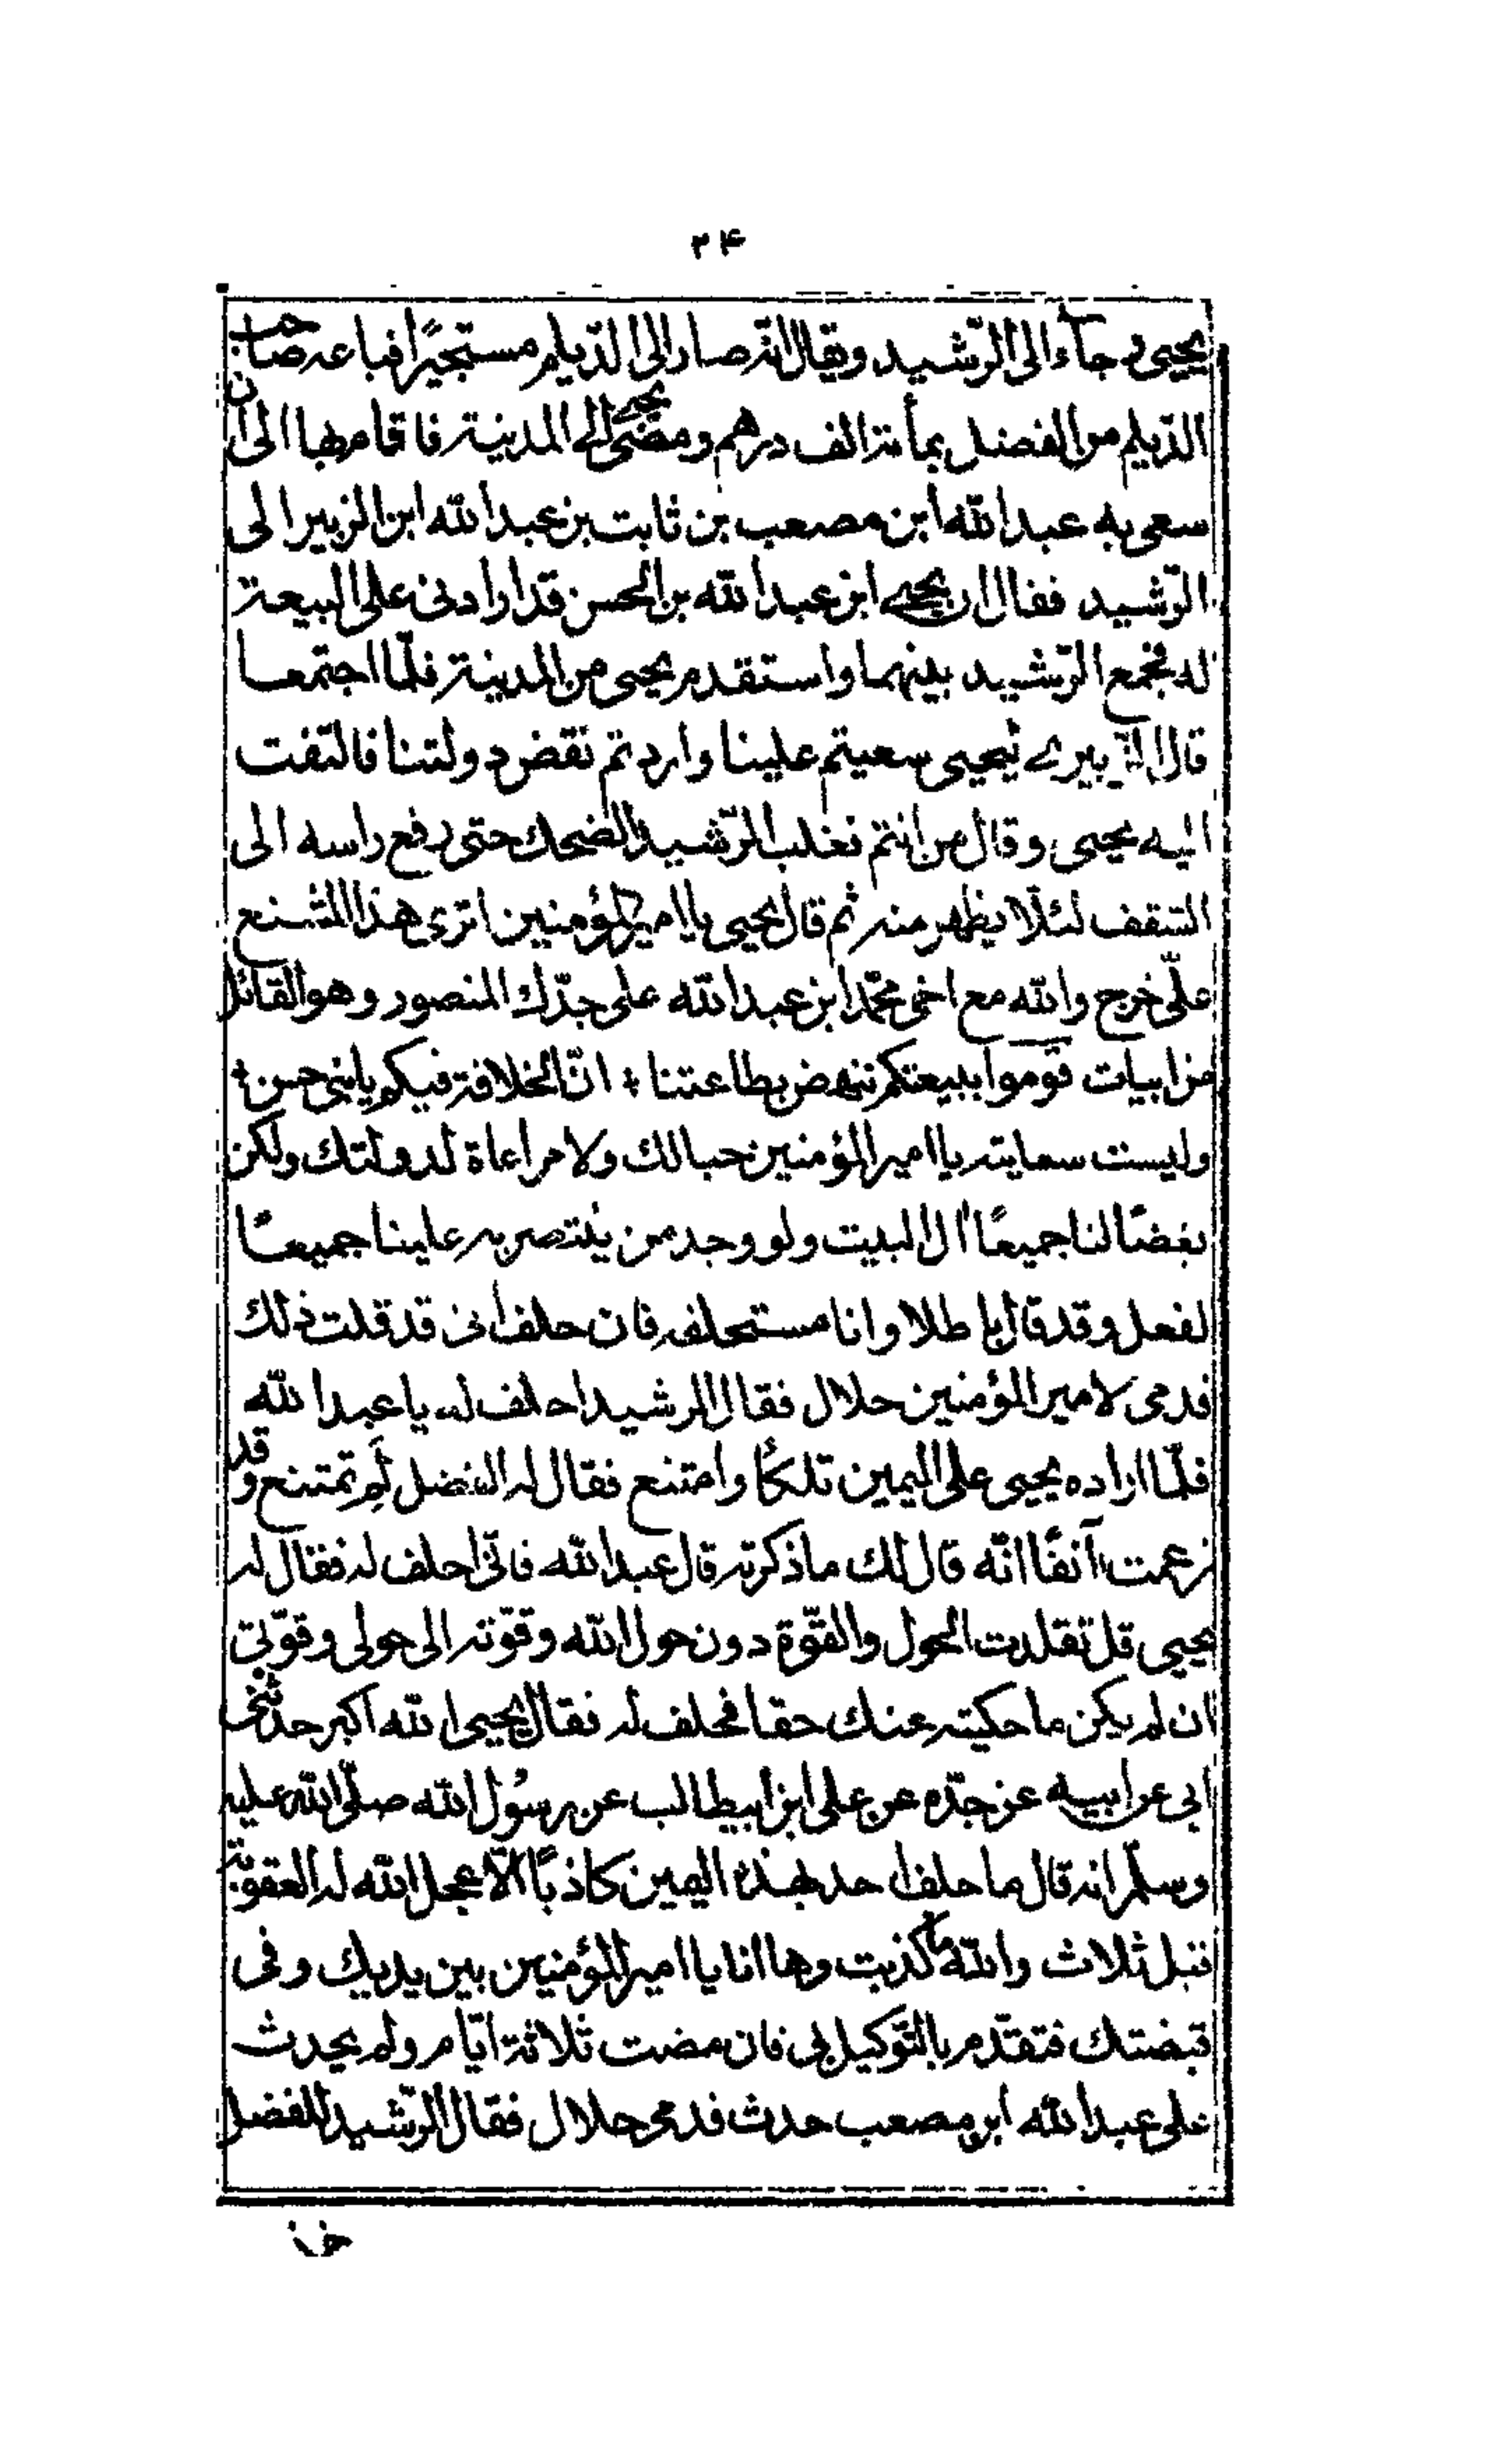 ۲۴
يحيى و جاء الى الرّشيد ويقال انّه صار الى الدّيلم مستجيرًا فباعه صاحب
الدّيلم من الفضل بمأته الف درهم ومضى يحيى الى المدينة فاقام بها الى ان
سعى به عبدالله ابن مصعب بن ثابت بن عبدالله ابن الزبير الى
الرّشيد فقال ان يحيى ابن عبدالله بن الحسن قد ارادنى على البيعة
له فجمع الرّشيد بينهما واستقدم يحيى من المدينة فلمّا اجتمعا
قال الزّبيرى ليحيى سعيتم علينا واردتم نقض دولتنا فالتفت
اليه يحيى وقال من انتم فغلب الرّشيد الضحك حتى رفع راسه الى
السّقف لئلّا يظهر منه ثم قال يحيى يا امير المؤمنين اترى هذا المشنع
علىّ خرج والله مع اخى محمّد ابن عبدالله على جدّك المنصور وهو القائل
من ابيات قوموا ببيعتكم ننهض بطاعتنا ؛ انّ الخلافة فيكم يابنى حسن ؛
وليست سعايته يا امير المؤمنين حبا لك ولا مراعاة لدولتك ولكن
بغضًا لنا جميعًا ال البيت ولو وجد من ينتصر به علينا جميعًا
لفعل وقد قال باطلا وانا مستحلفه فان حلف انى قد قلت ذلك
فدمى لامير المؤمنين حلال فقال الرشيد احلف له يا عبدالله
فلمّا اراده يحيى على اليمين تلكّأ وامتنع فقال له الفضل لِم تمتنع وقد
زعمت آنفًا انّه قال لك ما ذكرته قال عبدالله فانّى احلف له فقال له
يحيى قل تقلدت الحول والقوّة دون حول الله وقوّته الى حولى وقوّتى
ان لم يكن ما حكيته عنك حقا فحلف له فقال يحيى الله اكبر حدّثنى
ابى عن ابيه عن جدّه عن على ابن ابيطالب عن رسُول الله صلّى الله عليه
وسلّم انه قال ما حلف احد بهذه اليمين كاذبًا الّا عجل الله له العقوبة
قبل ثلاث والله ما كذبت وها انا يا امير المؤمنين بين يديك وفى
قبضتك فتقدّم بالتّوكيل بى فان مضت ثلاثة ايّام ولم يحدث
على عبدالله ابن مصعب حدث فدمى حلال فقال الرّشيد للفضل